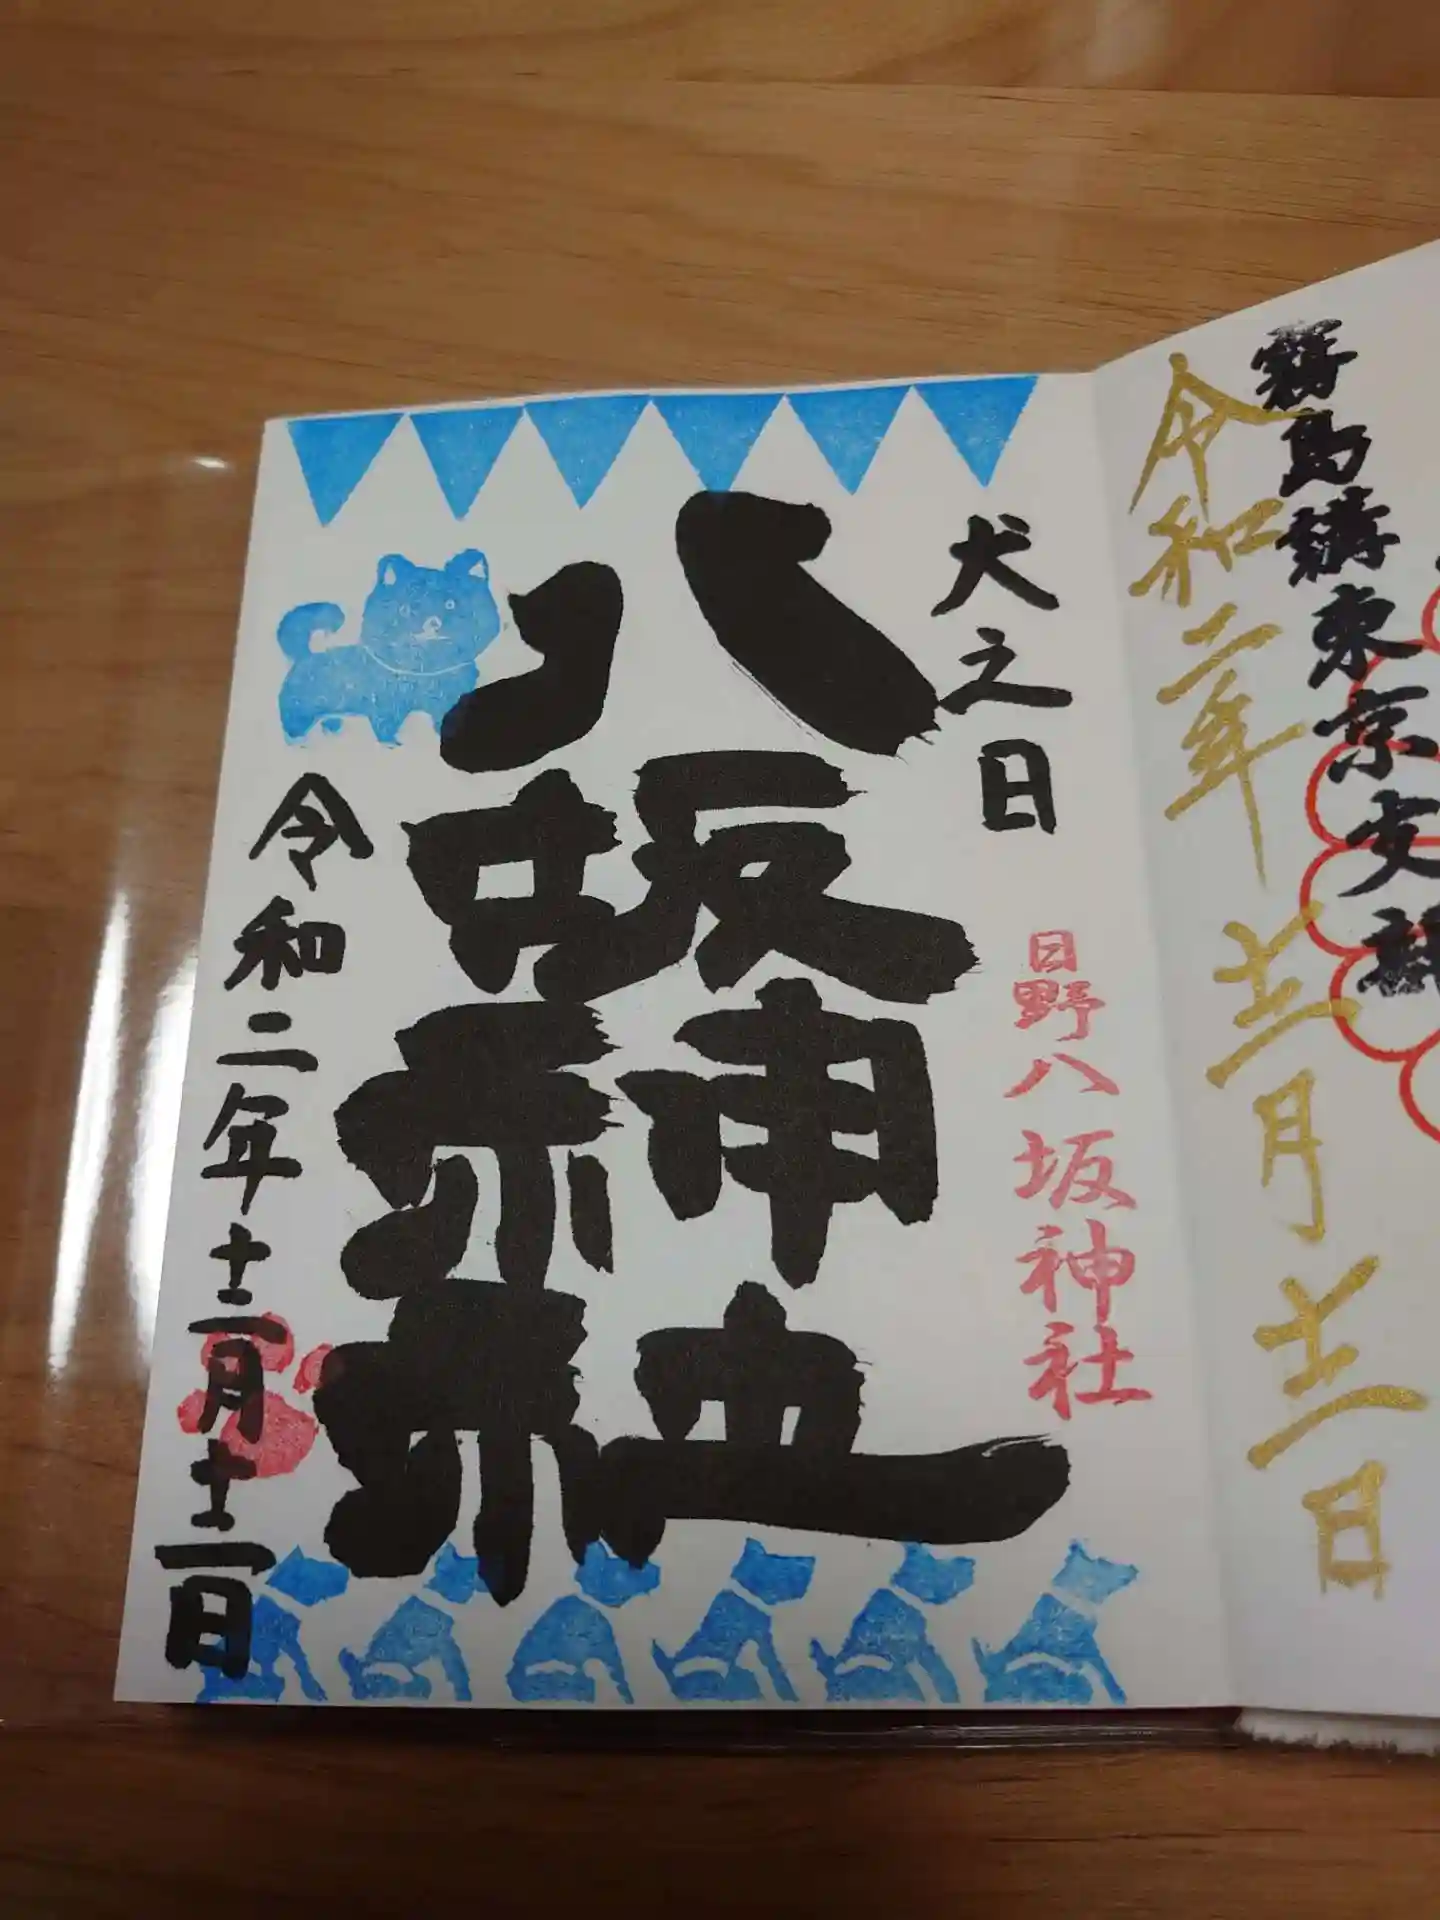 霧島講東京支部
令和二年十二月十二日
犬之日
日野八坂神社
八坂神社
令和二年十二月十二日